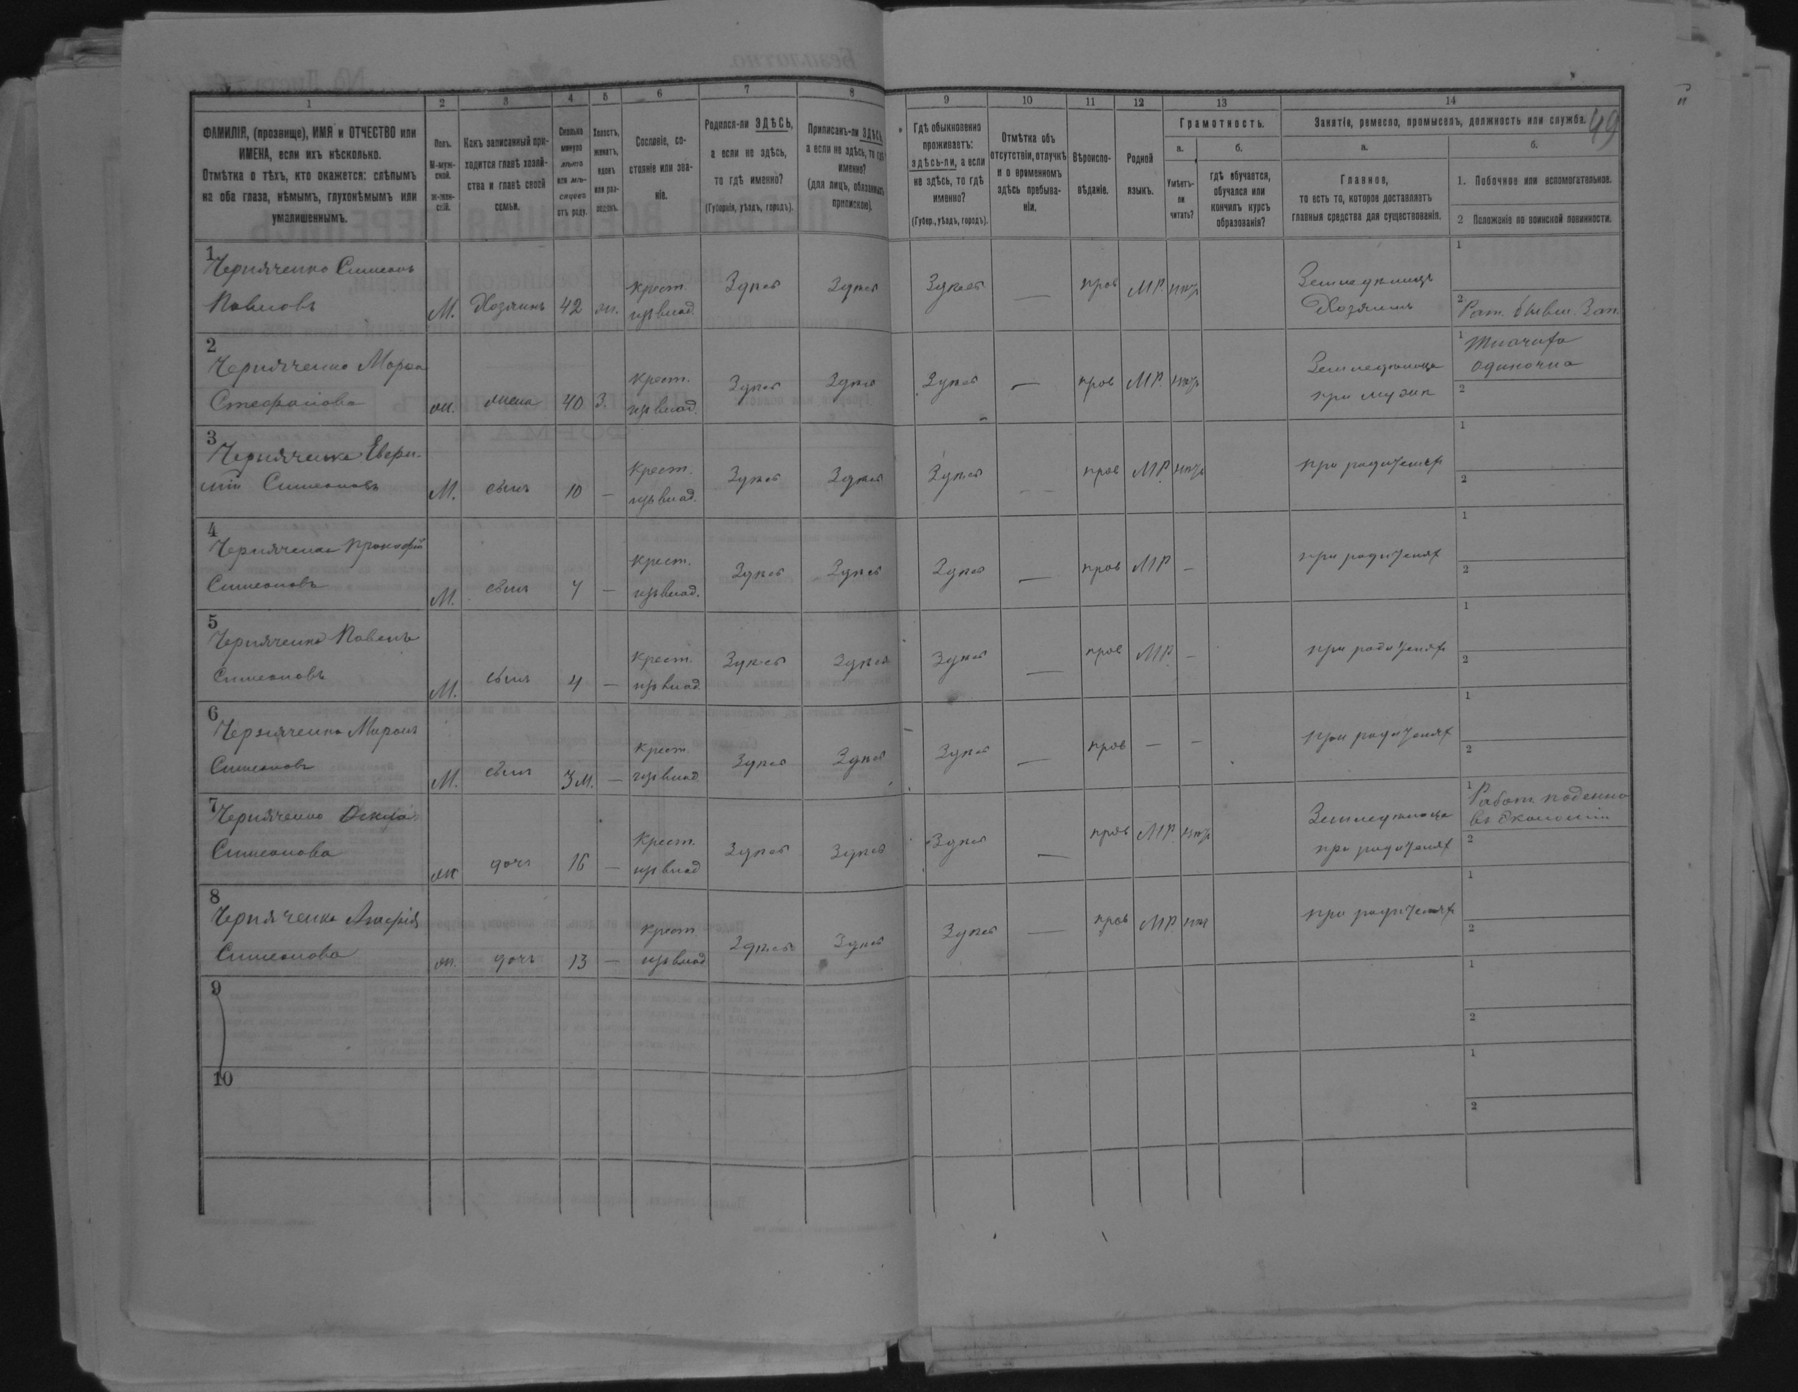 1 2 3 4 5 6 7 8 9 10 11 12 13 14
ФАМИЛІЯ, (прозвище), ИМЯ и ОТЧЕСТВО или
ИМЕНА, если ихъ нѣсколько.
Отмѣтка о тѣхъ, кто окажется: слѣпымъ
на оба глаза, нѣмымъ, глухонѣмымъ или
умалишеннымъ.
Полъ.
М-муж-
ской.
Ж-жен-
скій.
Какъ записанный при-
ходится главѣ хозяй-
ства и главѣ своей
семьи.
Сколько
минуло
лѣтъ
или мѣ-
сяцевъ
отъ роду.
Холостъ,
женатъ,
вдовъ
или раз-
веденъ.
Сословіе, со-
стояніе или зва-
ніе.
Родился-ли ЗДѢСЬ,
а если не здѣсь,
то гдѣ именно?
(Губернія, уѣздъ, городъ).
Приписанъ-ли ЗДѢСЬ,
а если не здѣсь, то гдѣ
именно?
(для лицъ, обязанныхъ
припискою).
Гдѣ обыкновенно
проживаетъ:
здѣсь-ли, а если
не здѣсь, то гдѣ
именно?
(Губер., уѣздъ, городъ).
Отмѣтка объ
отсутствіи, отлучкѣ
и о временномъ
здѣсь пребыва-
ніи.
Вѣроиспо-
вѣданіе.
Родной
языкъ.
Грамотность.
а.
Умѣетъ-
ли
читать?
б.
гдѣ обучается,
обучался или
кончилъ курсъ
образованія?
Занятіе, ремесло, промыселъ, должность или служба.
49
а.
Главное,
то есть то, которое доставляетъ
главныя средства для существованія.
б.
1. Побочное или вспомогательное.
2 Положеніе по воинской повинности.
1
Черняченко Симеонъ
Павловъ
М. Хозяинъ 42 ж. Крест. изъ влад. Здѣсь Здѣсь Здѣсь — прав МР нѣтъ
Земледѣлецъ
Хозяинъ
1
2 Рат. бывш. Зап.
2
Черняченко
Стефанова
ж. жена 40 З. Крест. изъ влад. Здѣсь Здѣсь Здѣсь — прав МР нѣтъ
Земледѣлица
при мужѣ
1
2
3
Черняченко
Симеоновъ
М. сынъ 10 — Крест. изъ влад. Здѣсь Здѣсь Здѣсь — прав МР нѣтъ
при родителях
1
2
4
Черняченко Прокофій
Симеоновъ
М. сынъ 7 — Крест. изъ влад. Здѣсь Здѣсь Здѣсь — прав МР —
при родителях
1
2
5
Черняченко Павелъ
Симеоновъ
М. сынъ 4 — Крест. изъ влад Здѣсь Здѣсь Здѣсь — прав МР —
при родителях
1
2
6
Черняченко Миронъ
Симеоновъ
М. сынъ 3м. — Крест. изъ влад Здѣсь Здѣсь Здѣсь — прав — —
при родителях
1
2
7
Черняченко
Симеонова
ж дочь 16 — Крест. изъ влад Здѣсь Здѣсь Здѣсь — прав МР нѣтъ
Земледѣлица
при родителях
1 Работ. поденно
въ Экономіи
2
8
Черняченко
Симеонова
ж. дочь 13 — Крест. изъ влад Здѣсь Здѣсь Здѣсь — прав МР нѣт
при родителях
1
2
9
1
2
10
1
2